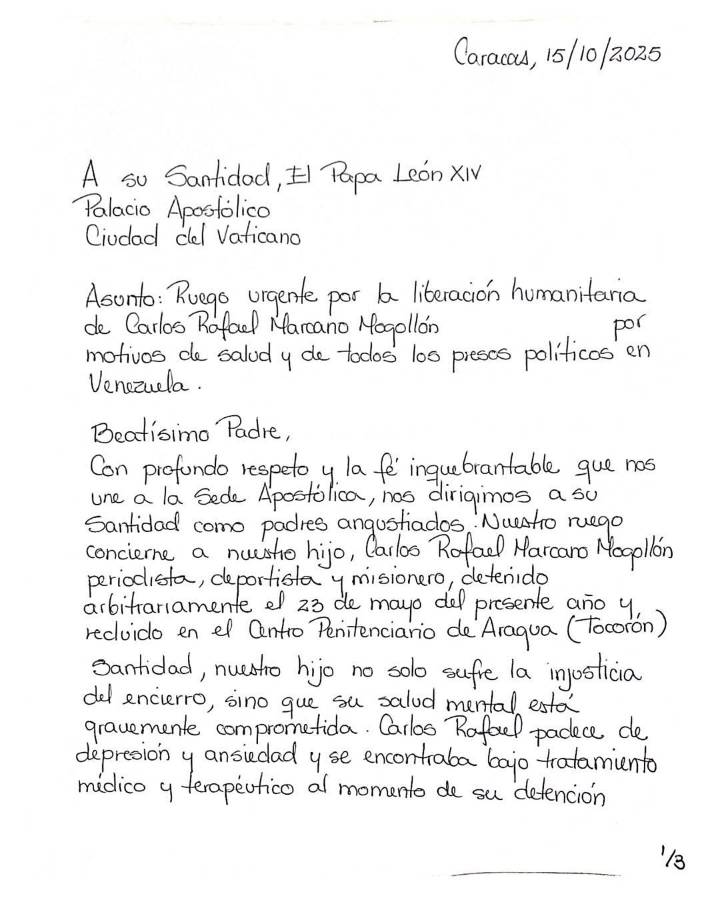 Caracas, 15/10/2025
A su Santidad, El Papa León XIV
Palacio Apostólico
Ciudad del Vaticano
Asunto: Ruego urgente por la liberación humanitaria
de Carlos Rafael Marcano Mogollón por
motivos de salud y de todos los presos políticos en
Venezuela.
Beatísimo Padre,
Con profundo respeto y la fé inquebrantable que nos
une a la Sede Apostólica, nos dirigimos a su
Santidad como padres angustiados. Nuestro ruego
concierne a nuestro hijo, Carlos Rafael Marcano Mogollón
periodista, deportista y misionero, detenido
arbitrariamente el 23 de mayo del presente año y,
recluido en el Centro Penitenciario de Aragua (Tocorón)
Santidad, nuestro hijo no solo sufre la injusticia
del encierro, sino que su salud mental está
gravemente comprometida. Carlos Rafael padece de
depresión y ansiedad y se encontraba bajo tratamiento
médico y terapéutico al momento de su detención
1/3